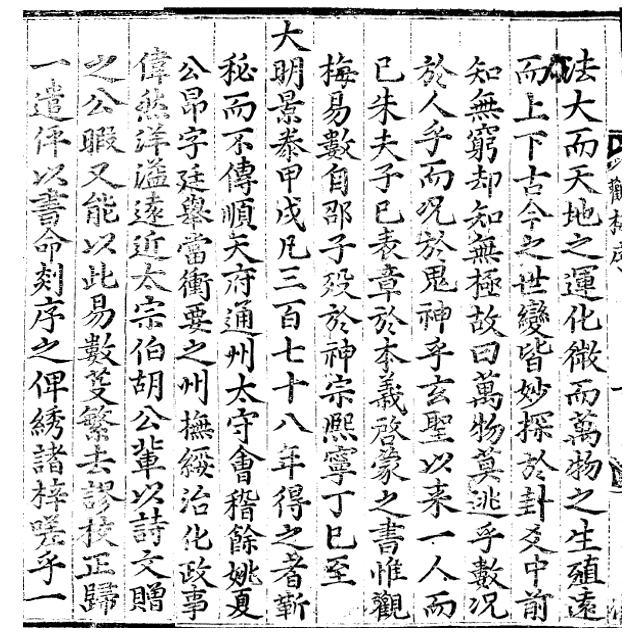 法大而天地之運化微而萬物之生殖遠
而上下古今之世變皆妙探於卦爻中前
知無窮却知無極故曰萬物莫逃乎數况
於人乎而况於鬼神乎玄聖以来一人而
已朱夫子已表章於本義啓蒙之書惟觀
梅易數自邵子殁於神宗熈寧丁巳至
大明景泰甲戌凡三百七十八年得之者靳
秘而不傳順天府通州太守會稽餘姚夏
公昂字廷舉當衝要之州撫綏治化政事
偉然洋溢遠近太宗伯胡公輩以詩文贈
之公暇又能以此易數芟繁去謬校正歸
一遣伻以書命刻序之俾綉諸梓嗟乎一
觀梅序